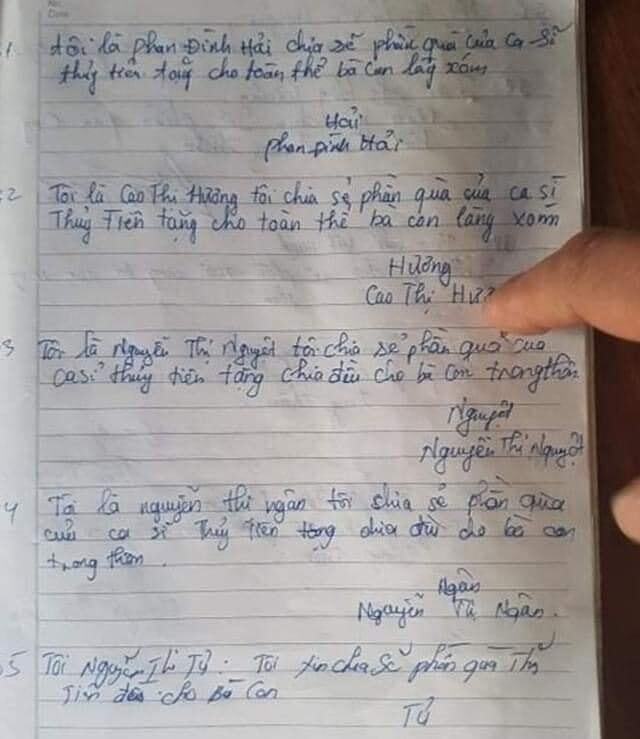 No:
Date
1 tôi là Phan Đình Hải chia sẻ phần quà của ca sĩ
thủy tiên tặng cho toàn thể bà con làng xóm
Hải
Phan Đình Hải
2 Tôi là Cao Thị Hương tôi chia sẻ phần quà của ca sĩ
Thuỷ Tiên tặng cho toàn thể bà con làng xóm
Hương
Cao Thị Hươ
3 Tôi là Nguyễn Thị Nguyệt tôi chia sẻ phần quà của
ca sĩ thủy tiên tặng chia đều cho bà con trong thôn
Nguyệt
Nguyễn Thị Nguyệt
4 Tôi là nguyễn thi ngân tôi chia sẻ phần qùa
của ca sĩ Thủy Tiên tặng chia đều cho bà con
trong thôn.
Ngân
Nguyễn Thị Ngân.
5 Tôi Nguyễn Thi Tứ. Tôi xin chia Sẻ phần quà Thủy
Tiên đều cho Bà Con
Tứ